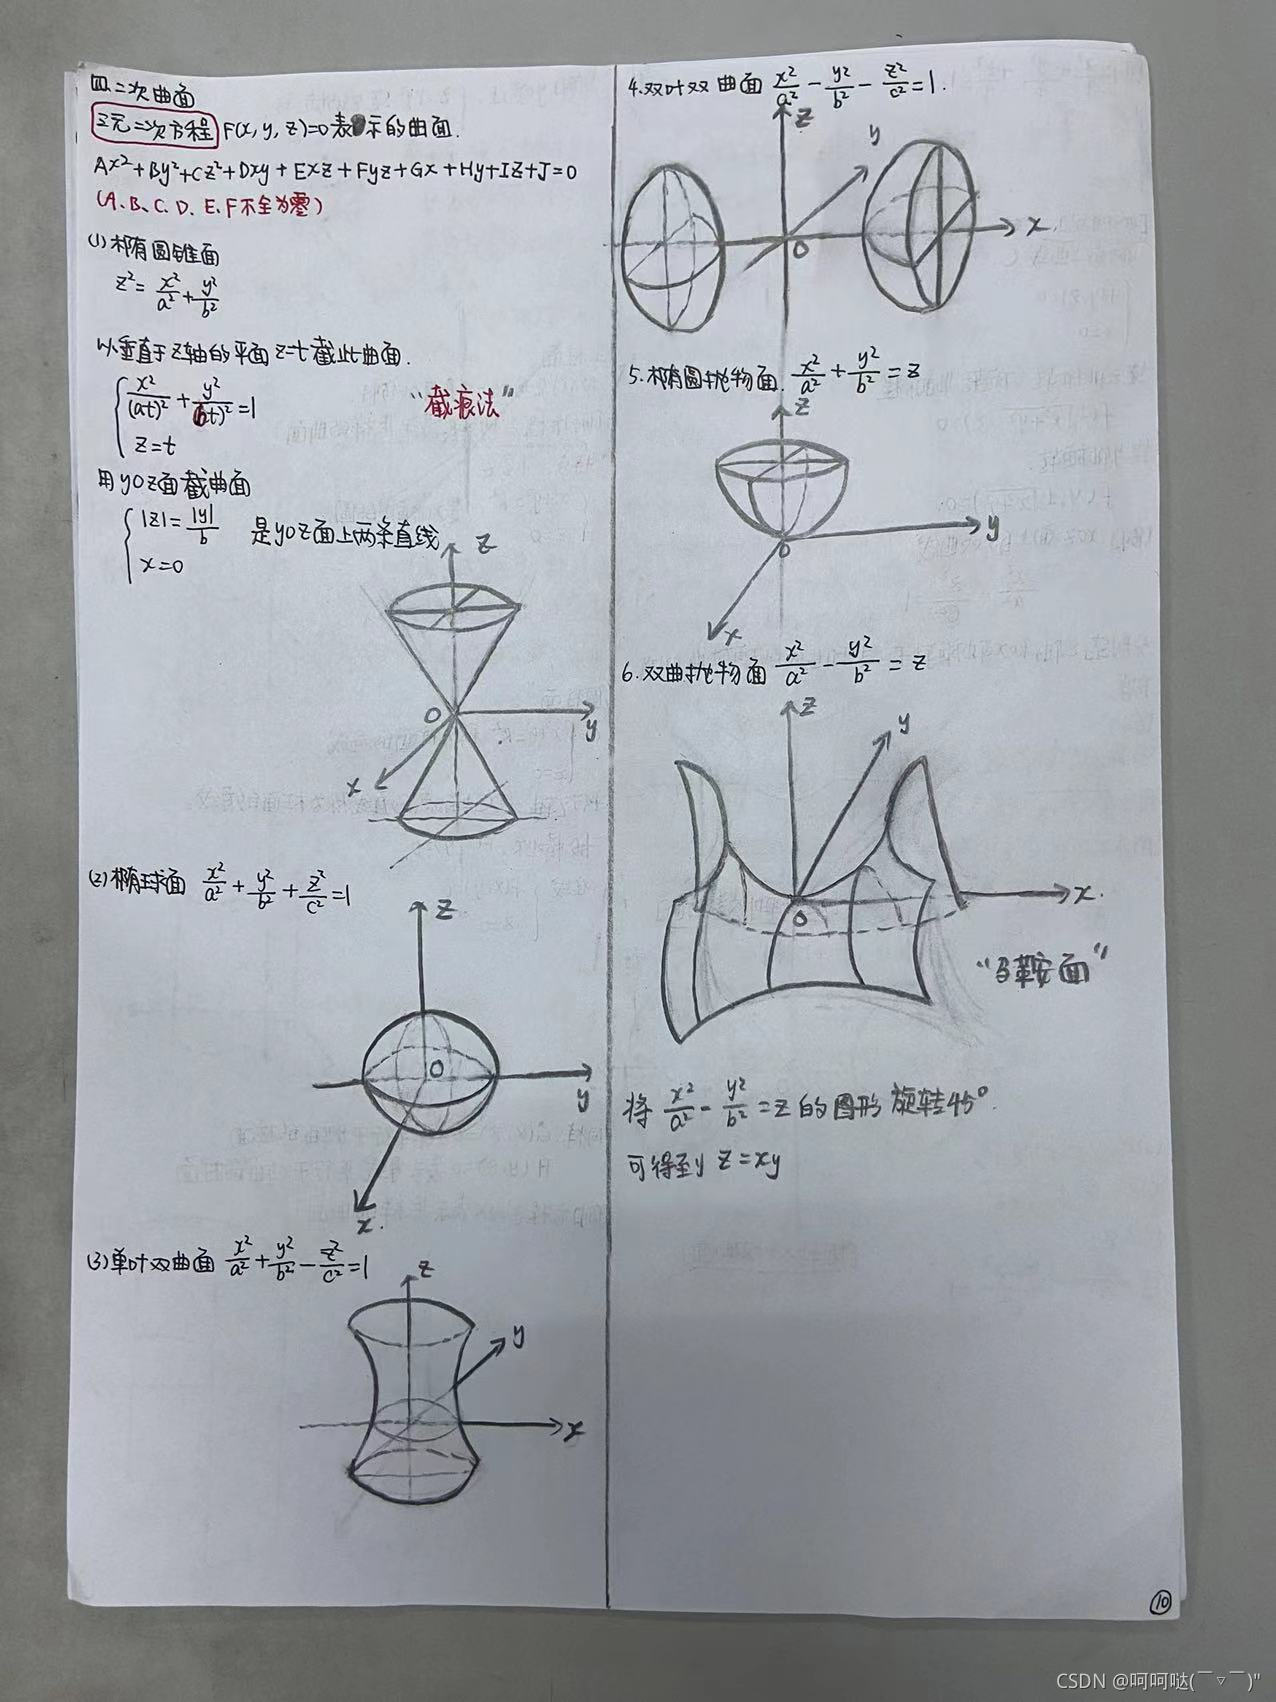 四.二次曲面
三元二次方程 F(x, y, z)=0表示的曲面.
Ax²+By²+Cz²+Dxy+Exz+Fyz+Gx+Hy+Iz+J=0
(A、B、C、D、E、F不全为零)
(1)椭圆锥面
z²= x²/a²+y²/b²
以垂直于z轴的平面z=t截此曲面.
{ x²/(at)²+y²/(bt)²=1
z=t
"截痕法"
用yoz面截曲面
{ |z|=|y|/b 是yoz面上两条直线
x=0
z
O
y
x
(2)椭球面 x²/a²+y²/b²+z²/c²=1
z
O
y
x.
(3)单叶双曲面 x²/a²+y²/b²-z²/c²=1
z
y
x
4.双叶双曲面 x²/a²-y²/b²-z²/c²=1.
z
y
x
O
5.椭圆抛物面. x²/a²+y²/b²=z
z
y
O
x
6.双曲抛物面 x²/a²-y²/b²=z
z
y
x.
O
"马鞍面"
将 x²/a²-y²/b²=z的图形旋转45°.
可得到 z=xy
10
CSDN @呵呵哒(￣▽￣)"